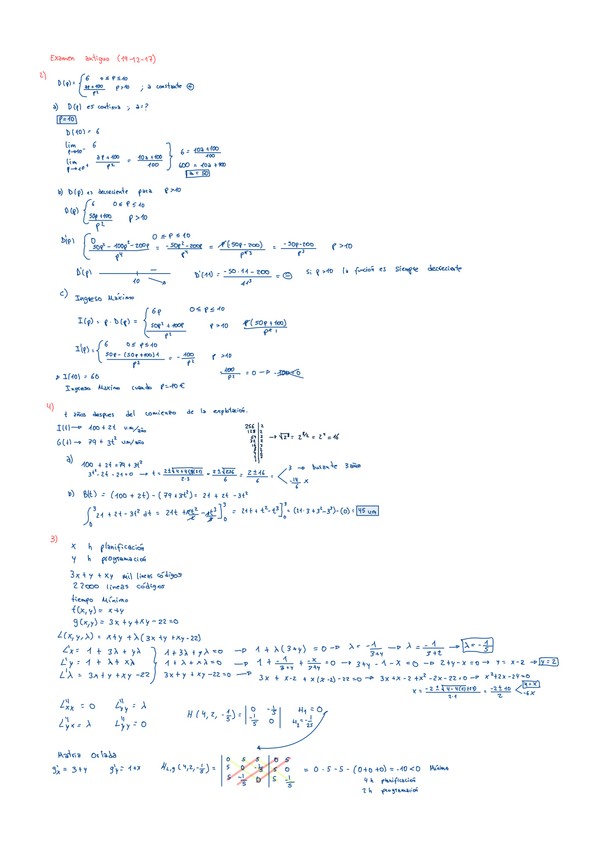 Examen antiguo (19-12-17)
2)
D(p) = { 6 0 ≤ p ≤ 10
ap+100 / p² p>10 ; a constante ⊕
a) D(p) es continua ; a=?
p=10
D(10) = 6
lim p→10⁻ 6
lim p→10⁺ ap+100 / p² = 10a+100 / 100
6 = 10a+100 / 100
600 = 10a+100
a = 50
b) D(p) es decreciente para p>10
D(p) { 6 0 ≤ p ≤ 10
50p+100 / p² p>10
D'(p) { 0 0 ≤ p ≤ 10
50p²-100p²-200p / p⁴ = -50p²-200p / p⁴ = p(50p-200) / p⁴³ = -50p-200 / p³ p>10
D'(p) 10 - D'(11) = -50·11-200 / 11³ = ⊖ Si p>10 la función es siempre decreciente
c) Ingreso Máximo
I(p) = p·D(p) = { 6p 0 ≤ p ≤ 10
50p²+100p / p² p>10 p(50p+100) / p²
I'(p) = { 6 0 ≤ p ≤ 10
50p-(50p+100)1 / p² = -100 / p² p>10
I(10) = 60 100 / p² = 0 →
Ingreso Máximo cuando p=10€
4)
t años despues del comienzo de la explotación.
I(t) → 100+2t um/año
G(t) → 79+3t² um/año
256 | 2
128 | 2
→ √2⁸ = 2^8/2 = 2⁴ = 16
a) 100+2t = 79+3t²
3t²-2t-21=0 → t = 2±√4+4·3·21 / 2·3 = 2±√256 / 6 = 2±16 / 6 = < 3 → Durante 3 años
-14/6 x
b) B(t) = (100+2t) - (79+3t²) = 21+2t-3t²
∫₀³ 21+2t-3t² dt = 21t+2t²/2-3t³/3]₀³ = 21t+t²-t³]₀³ = (21·3+3²-3³)-(0) = 45 um
3)
x h planificación
y h programación
3x+y+xy mil líneas códigos
22000 líneas códigos
tiempo Mínimo
f(x,y) = x+y
g(x,y) = 3x+y+xy-22=0
L(x,y,λ) = x+y+λ(3x+y+xy-22)
L'x = 1+3λ+yλ 1+3λ+yλ=0 → 1+λ(3+y)=0 → λ = -1 / 3+y → λ = -1 / 3+2 → λ = -1/5
L'y = 1+λ+xλ 1+λ+xλ=0 → 1+ -1 / 3+y + -x / 3+y = 0 → 3+y-1-x=0 → 2+y-x=0 → y=x-2 → y=2
L'λ = 3x+y+xy-22 3x+y+xy-22=0 → 3x+x-2+x(x-2)-22=0 → 3x+x-2+x²-2x-22=0 → x²+2x-24=0
x = -2±√4-4·(-24)·1 / 2·1 = -2±10 / 2 < 4=x
-6x
L''xx = 0 L''xy = λ
L''yx = λ L''yy = 0
H(4,2,-1/5) = | 0 -1/5
-1/5 0 | H₁=0
H₂=-1/25
Matriz Orlada
g'x = 3+y g'y = 1+x
H_L,g(4,2,-1/5) = | 0 5 5 | 0 5
5 0 -1/5 | 5 0
5 -1/5 0 | 5 -1/5
= 0-5-5-(0+0+0) = -10 < 0 Mínimo
4h planificación
2h programación